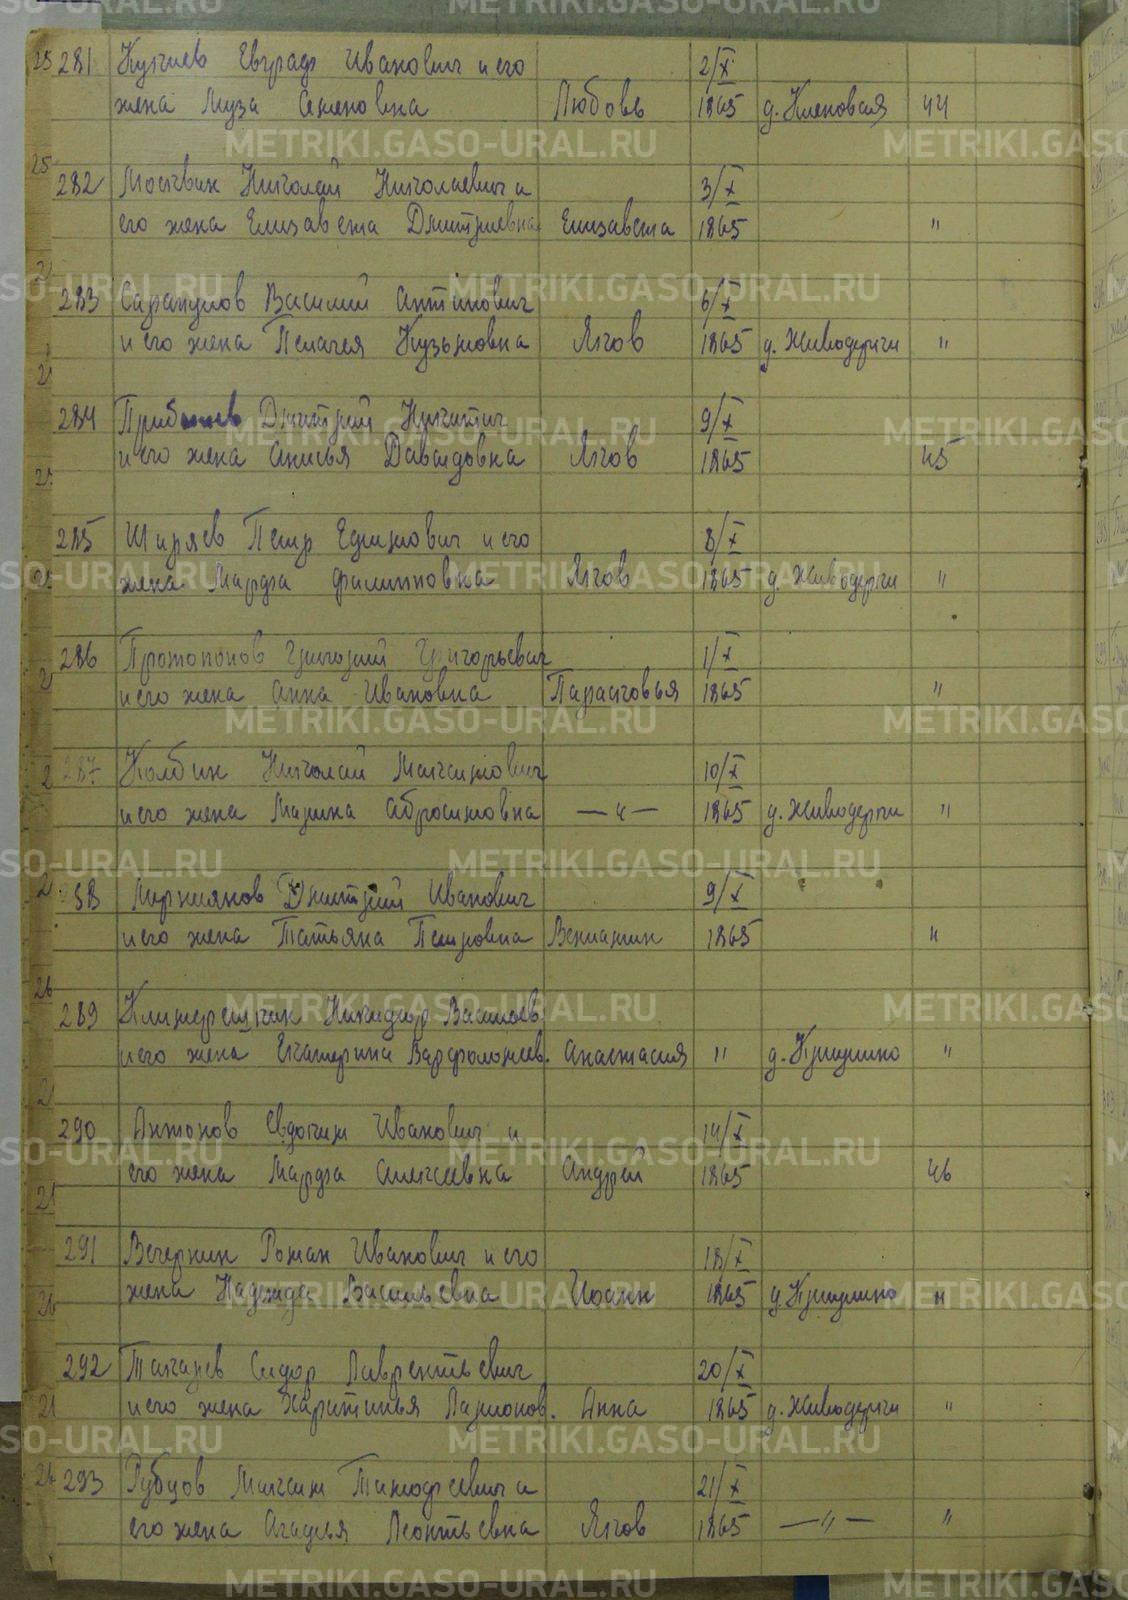 281 Кузнецов Евграф Иванович и его 2/X
жена Муза Семеновна Любовь 1865 д. Кленовая 44
282 Москвин Николай Николаевич и 3/X
его жена Елизавета Дмитриевна Елизавета 1865 "
283 Сарапулов Василий Антипович 6/X
и его жена Пелагея Кузьмовна Яков 1865 "
284 Дмитрий Никитич 9/X
и его жена Анисья Давыдовна Яков 1865 45
285 Ширяев Петр Ефимович и его 8/X
жена Марфа Филипповна Яков 1865 "
286 Протопопов Григорий Григорьевич 1/X
и его жена Анна Ивановна Парасковья 1865 "
287 Колбин Николай Максимович 10/X
и его жена Марина Абросимовна — " — 1865 "
288 Дмитрий Иванович 9/X
и его жена Татьяна Петровна Вениамин 1865 "
289 Никифор Васильев.
и его жена Екатерина Варфоломеев. Анастасия " "
290 Антонов Евдоким Иванович и 14/X
его жена Марфа Алексеевна Андрей 1865 46
291 Вечеркин Роман Иванович и его 18/X
жена Надежда Васильевна Иоанн 1865 "
292 Сидор Лаврентьевич 20/X
и его жена Харитинья Ларионов. Анна 1865 "
293 Рубцов Максим Тимофеевич и 21/X
его жена Агафья Леонтьевна Яков 1865 — " — "
METRIKI.GASO-URAL.RU